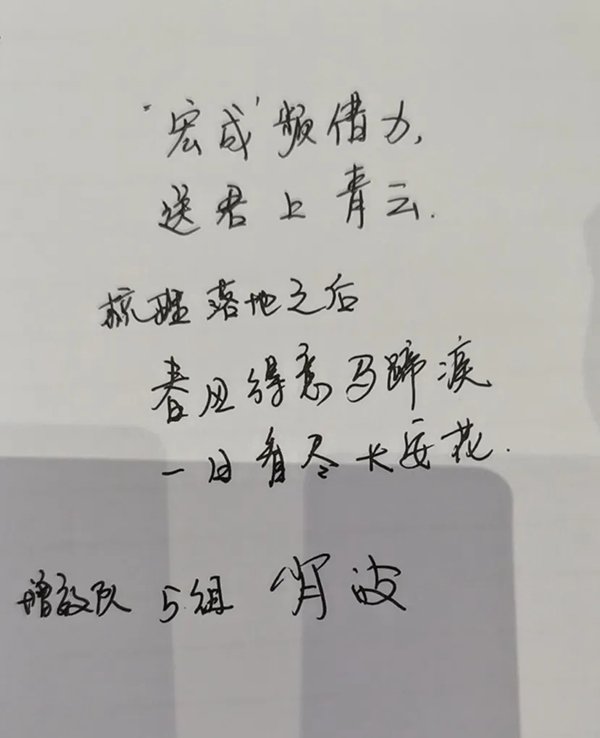 “宏成”频借力，
送君上青云.
梳理落地之后
春风得意马蹄疾
一日看尽长安花.
增效队 5组 肖波